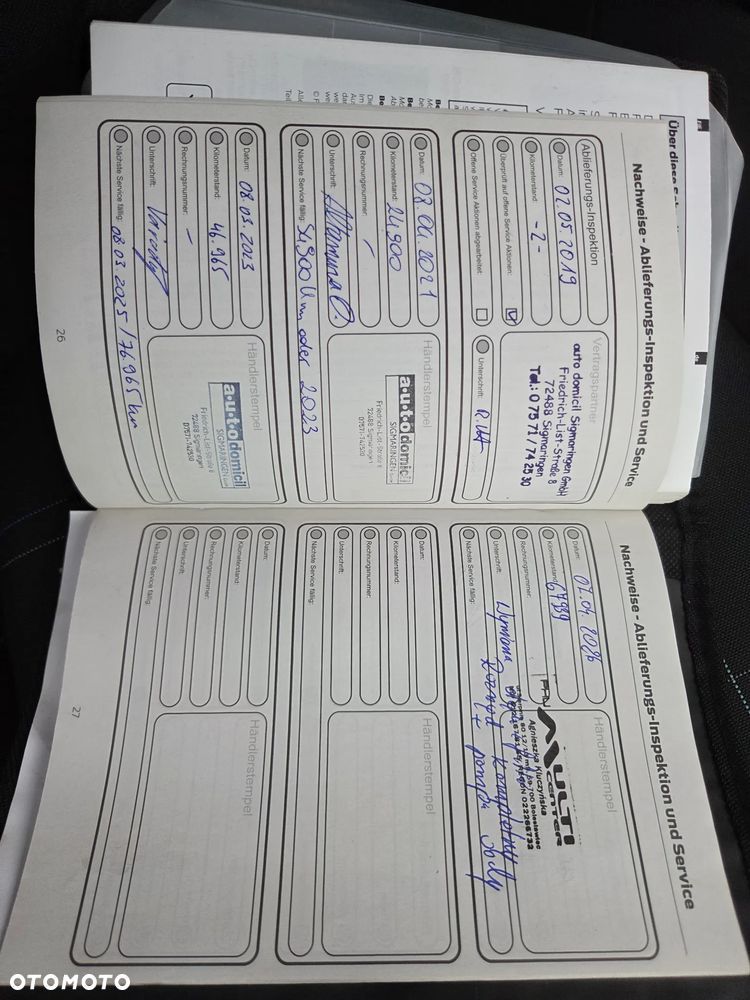 Über diese
Nachweise - Ablieferungs-Inspektion und Service
Ablieferungs-Inspektion
Datum: 02.05.2019
Kilometerstand: -2-
Überprüft auf offene Service Aktionen:
Offene Service Aktionen abgearbeitet:
Vertragspartner
auto domicil Sigmaringen GmbH
Friedrich-List-Straße 8
72488 Sigmaringen
Tel.: 0 75 71 / 74 25 30
Unterschrift:
Datum: 08.04.2021
Kilometerstand: 24900
Rechnungsnummer: -
Unterschrift:
Nächste Service fällig: 54900 km oder 2023
Händlerstempel
auto domicil
SIGMARINGEN
Friedrich-List-Straße
72488 Sigmaringen
07571-742530
Datum: 08.03.2023
Kilometerstand: 46.965
Rechnungsnummer: -
Unterschrift:
Nächste Service fällig: 08 03 2025 / 76.965 km
Händlerstempel
auto domicil
SIGMARINGEN
Friedrich-List-Straße
72488 Sigmaringen
07571-742530
26
Nachweise - Ablieferungs-Inspektion und Service
Datum: 02.04.2026
Kilometerstand: 67939
Rechnungsnummer:
Unterschrift:
Nächste Service fällig:
Wymiana
Rozrząd kompletny
+ pompa wody
Händlerstempel
PHU
MULTI
CENTER
Agnieszka Kluczyńska
59-700 Bolesławiec
REGON 022266732
Datum:
Kilometerstand:
Rechnungsnummer:
Unterschrift:
Nächste Service fällig:
Händlerstempel
Datum:
Kilometerstand:
Rechnungsnummer:
Unterschrift:
Nächste Service fällig:
Händlerstempel
27
OTOMOTO